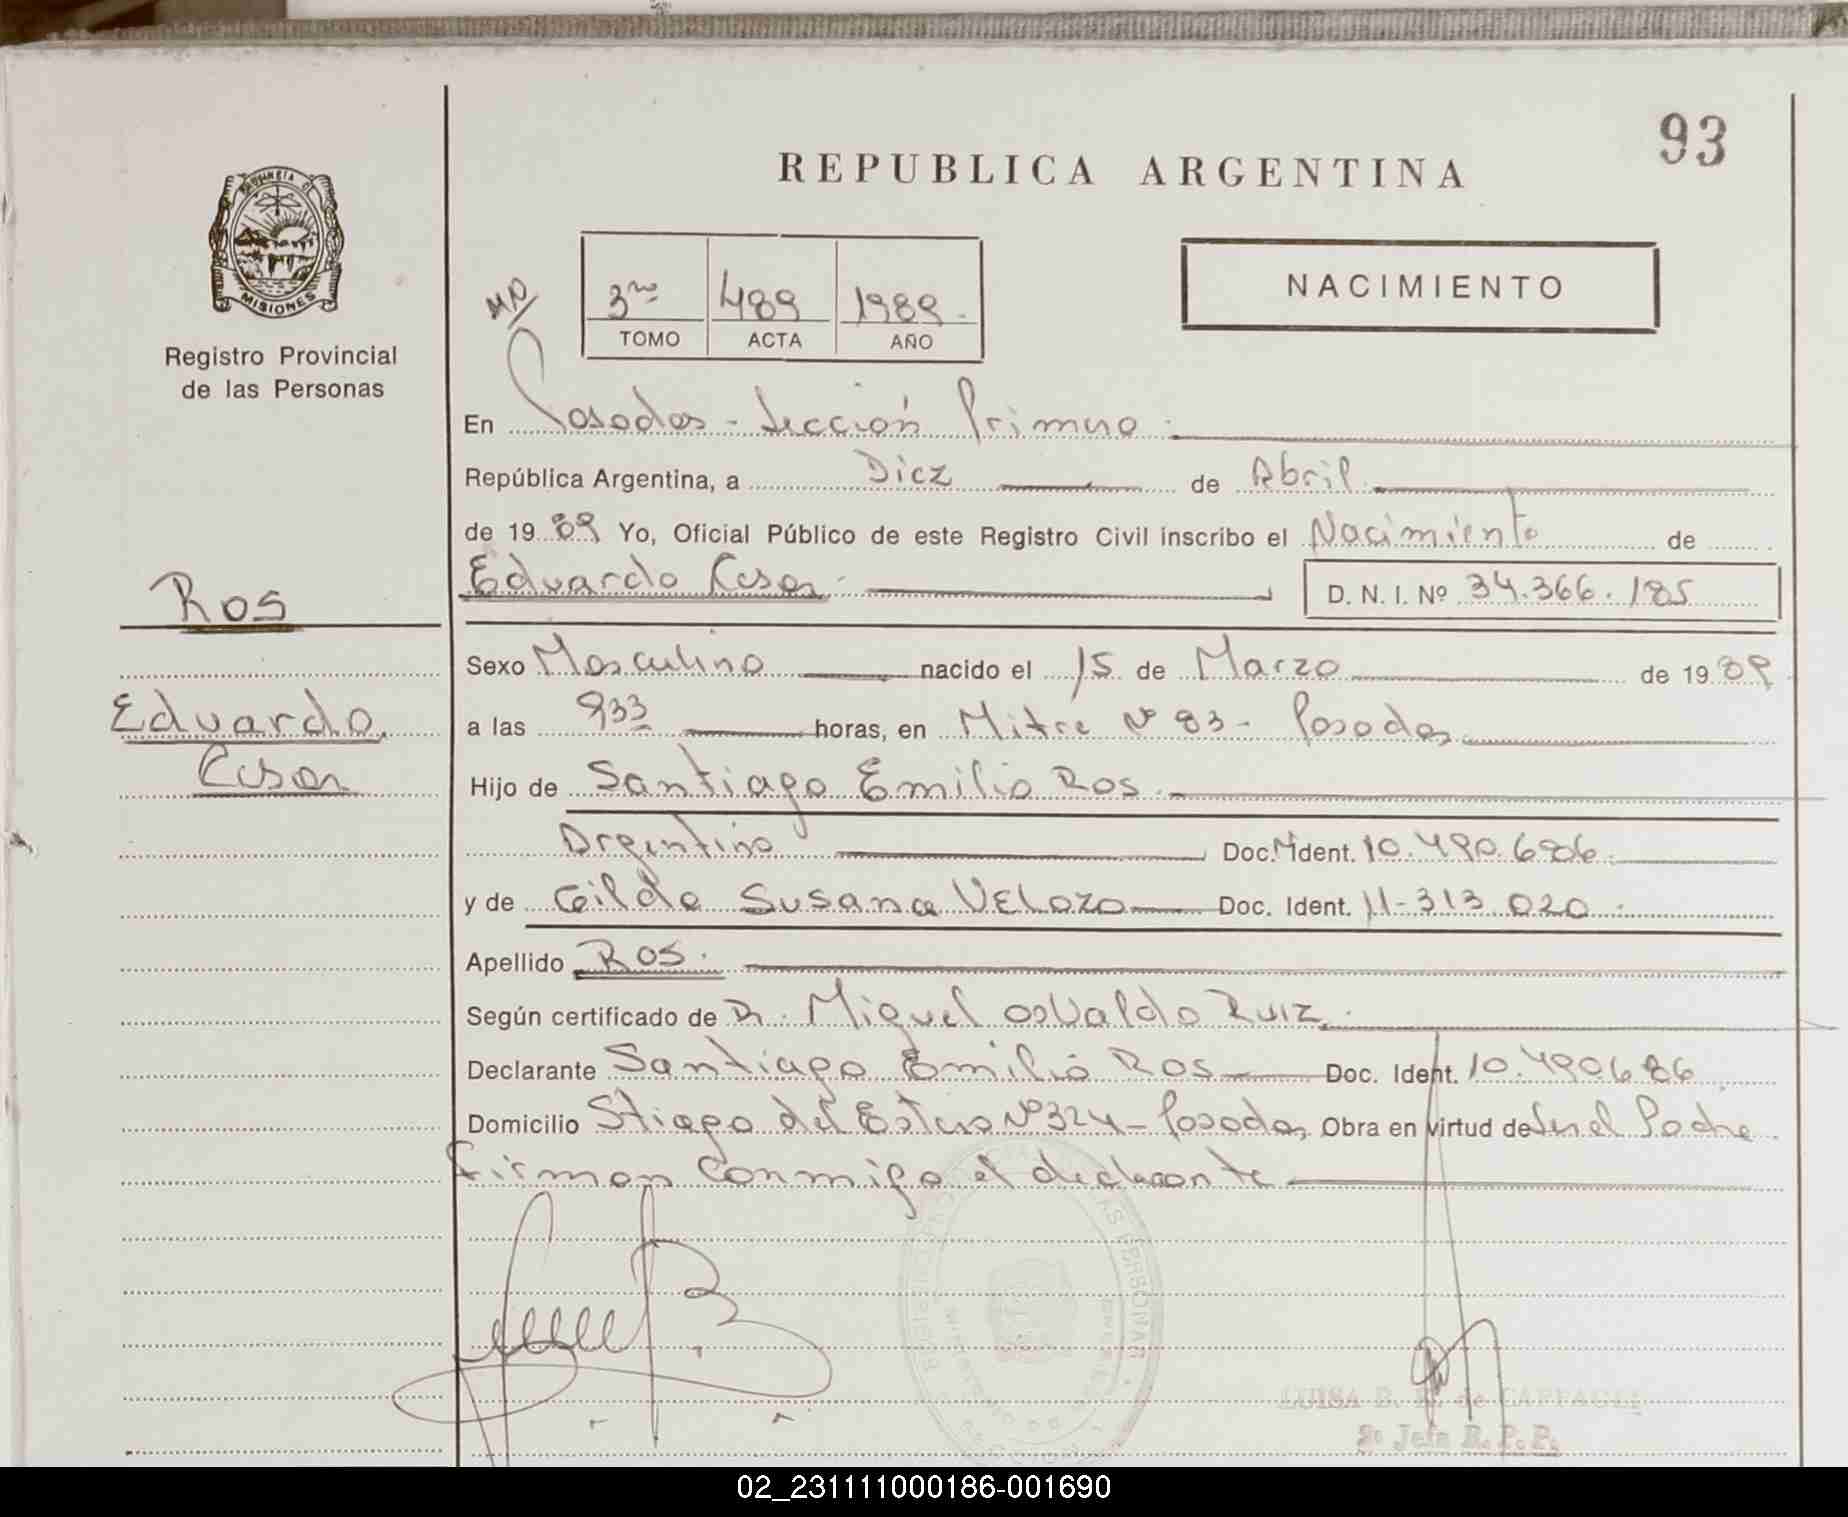 93
REPUBLICA ARGENTINA
PROVINCIA DE
MISIONES
Registro Provincial
de las Personas
3ro 489 1989.
TOMO ACTA AÑO
NACIMIENTO
En Posadas - Sección Primera
República Argentina, a Diez de Abril
de 1989 Yo, Oficial Público de este Registro Civil inscribo el Nacimiento de
Eduardo Cesar D. N. I. Nº 34.366.185
Ros
Eduardo
Cesar
Sexo Masculino nacido el 15 de Marzo de 1989
a las 933 horas, en Mitre Nº 83 - Posadas
Hijo de Santiago Emilio Ros.
Argentino Doc. Ident. 10.490.686
y de Gilda Susana Velozo Doc. Ident. 11-313.020
Apellido Ros.
Según certificado de Dr. Miguel Osvaldo Ruiz
Declarante Santiago Emilio Ros Doc. Ident. 10.490.686
Domicilio Stiago del Estero Nº 324 - Posadas Obra en virtud de Ser el Padre
firman conmigo el declarante
LUISA B. de
R. P. P.
02_231111000186-001690